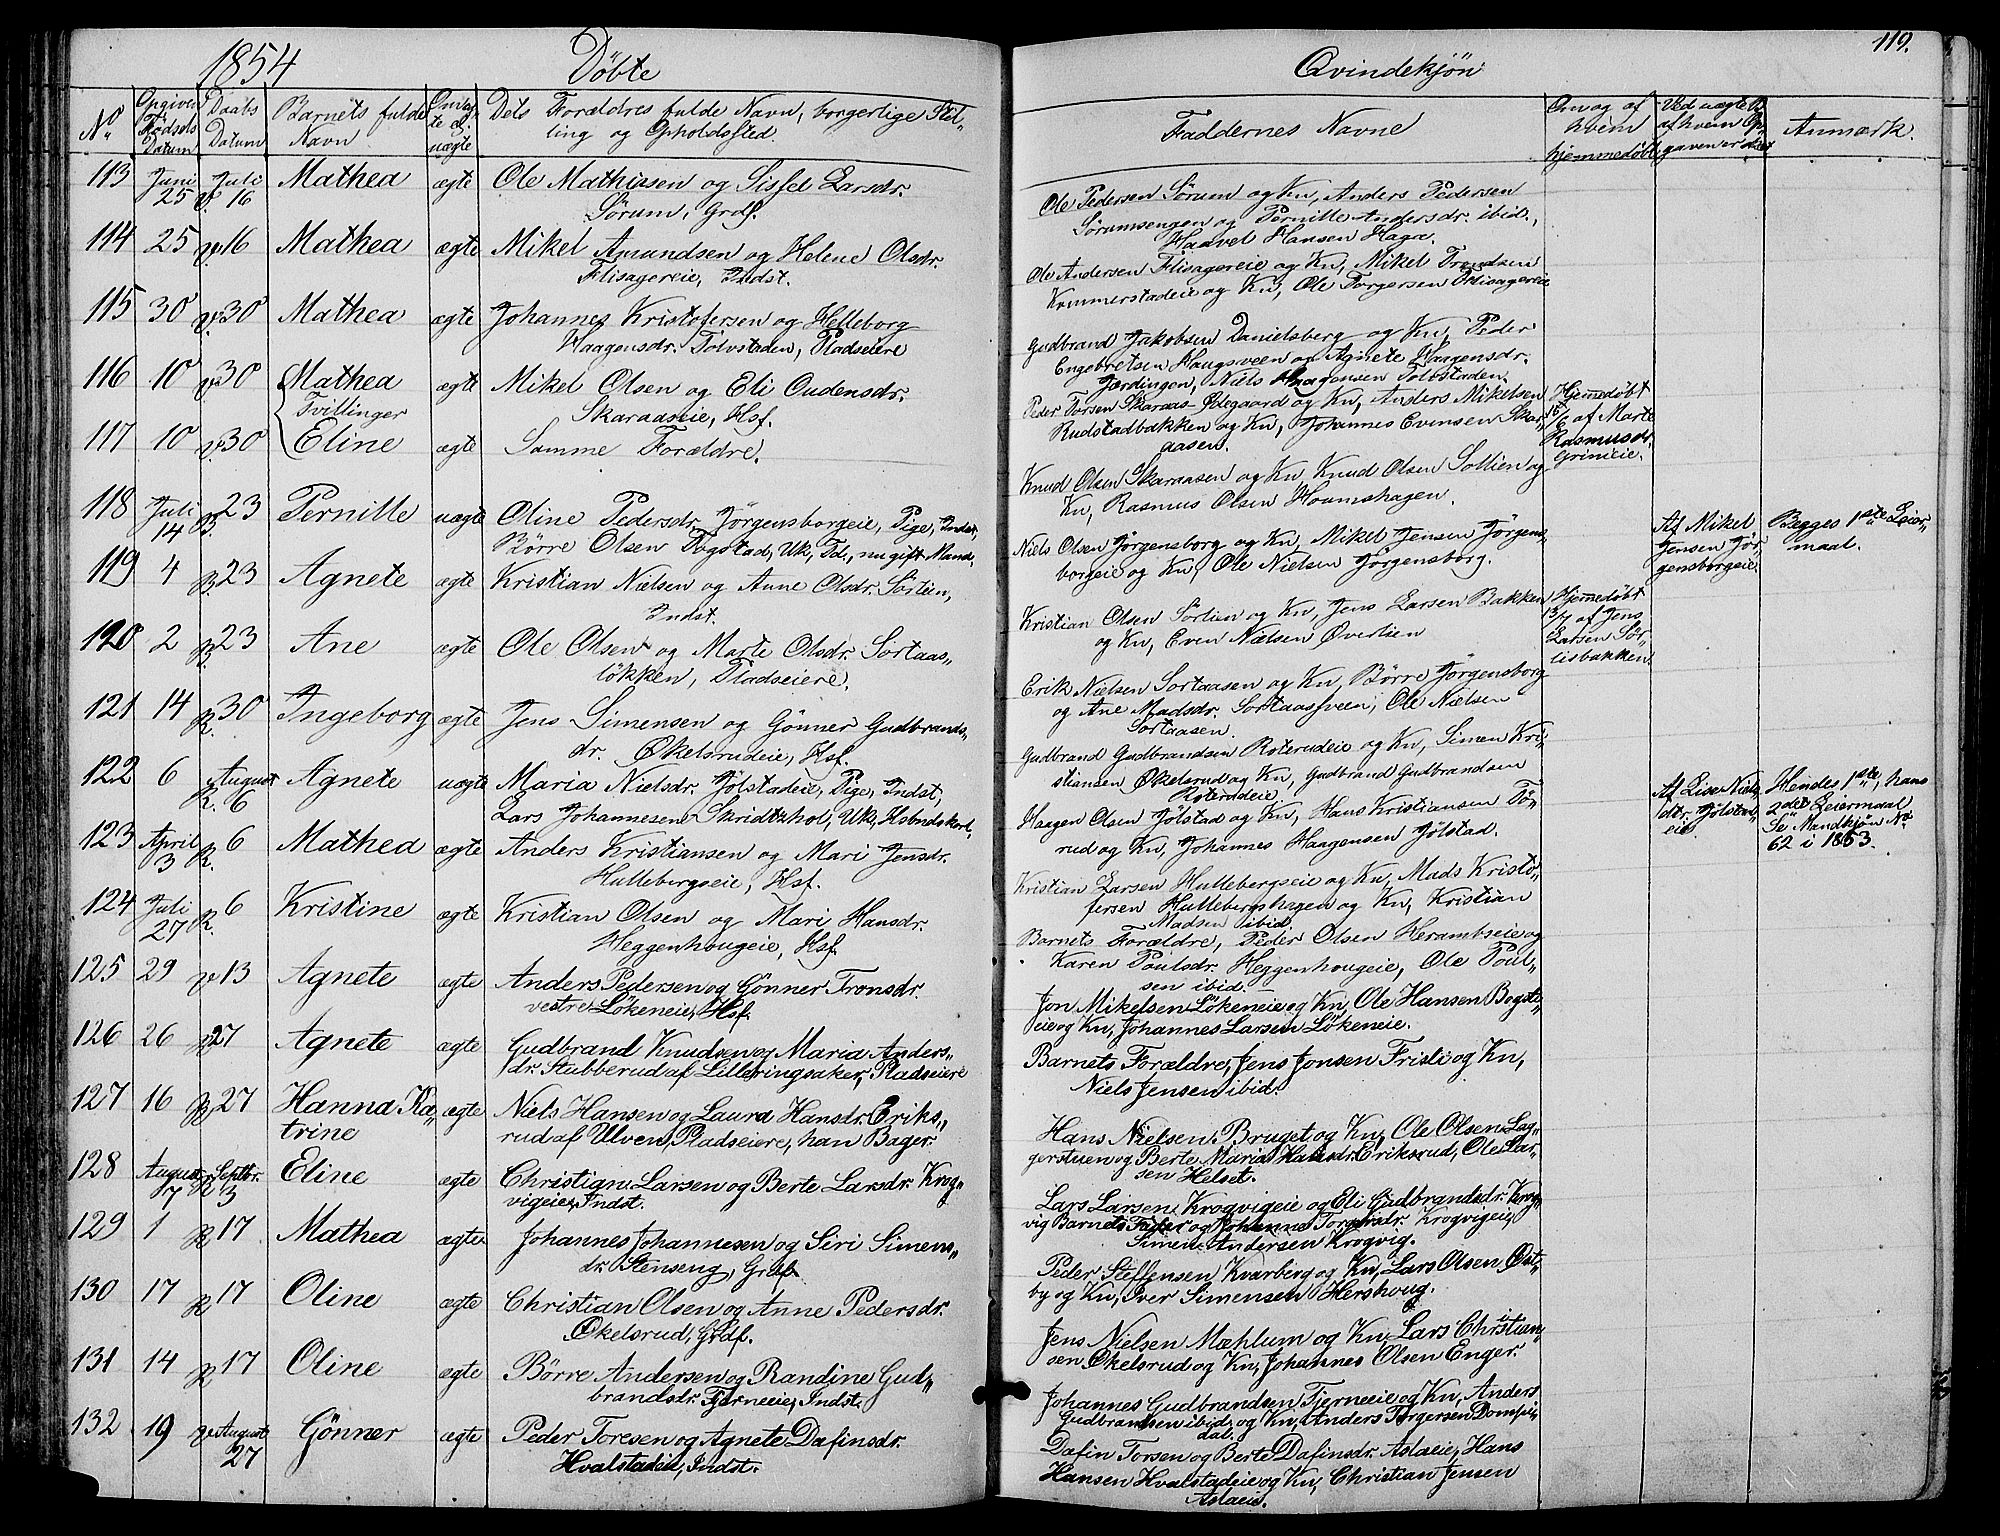 1854 Döbte
No. Opgiven Födsels Datum Daabs Datum Barnets fulde Navn Om ægte el. uægte Dets Forældres fulde Navn, borgerlige Stilling og Opholdssted.
113 Juni 25 V. Juli 16 Mathea ægte Ole Mathissen og Sissel Larsdr.
Sörum, Grdf.
114 25 V. 16 Mathea ægte Mikel Amundsen og Helene Olsdr.
Flisagereie, Indst.
115 30 V. 30 Mathea ægte Johannes Kristofersen og Helleborg
Haagensdr. Tolvstaden, Pladseiere
116 10 V. 30 Mathea ægte Mikel Olsen og Eli Oudensdr.
Tvillinger Skaraaseie, Hsf.
117 10 V. 30 Eline ægte Samme Forældre.
118 Juli 14 B. 23 Pernille uægte Oline Pedersdr. Jörgensborgeie, Pige, Indst,
Börre Olsen Fogstad, Uk, Td, nu gift Mand.
119 4 B. 23 Agnete ægte Kristian Nielsen og Anne Olsdr. Sörlien,
Indst.
120 2 B. 23 Ane ægte Ole Olsen og Marte Olsdr. Sortaas„
lökken, Pladseiere.
121 14 R. 30 Ingeborg ægte Jens Simensen og Gönner Gudbrands„
dr. Økelsrudeie, Hsf.
122 6 R. August 6 Agnete uægte Maria Nielsdr. Jölstadeie, Pige, Indst,
Lars Johannesen Skridtshol, Uk,
123 April 3 R. 6 Mathea ægte Anders Kristiansen og Mari Jensdr.
Hullebergseie, Hsf.
124 Juli 27 R. 6 Kristine ægte Kristian Olsen og Mari Hansdr.
Heggenhougeie, Hsf.
125 29 V 13 Agnete ægte Anders Pedersen og Gönner Tronsdr.
vestre Lökeneie, Hsf.
126 26 V 27 Agnete ægte Gudbrand Knudsen og Maria Anders„
dr. Stubberud af Lilleringsaker, Pladseiere
127 16 B 27 Hanna Ka„ ægte Niels Hansen og Laura Hansdr. Eriks„
trine rud af Ulven, Pladseiere, han Bager.
128 August 7 R Septbr. 3 Eline ægte Christian Larsen og Berte Larsdr. Krog„
vigeie, Indst.
129 1 R 17 Mathea ægte Johannes Johannesen og Siri Simens„
dr. Stenseng, Grdf.
130 17 R 17 Oline ægte Christian Olsen og Anne Pedersdr.
Økelsrud, Grdf.
131 14 R 17 Oline ægte Börre Andersen og Randine Gul„
brandsdr. Fjerneeie, Indst.
132 19 V August 27 Gönner ægte Peder Toresen og Agnete Dafinsdr.
Hvalstadeie, Indst.
Qvindekjön 119.
Faddernes Navne Om og af hvem hjemmedøbt Ved uægte B. af hvem Opgaven er skeet Anmærk.
Ole Pedersen Sörum og Kn, Anders Pedersen
Sörumsengen og Pernille Andersdr. ibid.,
Haavel Hansen Hagn.
Ole Andersen Flisagereie og Kn, Mikel Trondsen
Kummerstadeie og Kn, Ole Torgersen Flisagereie
Gudbrand Jakobsen Danielsberg og Kn, Peder
Engebretsen Haugsveen og Agnete Haagensdr.
Jærdingen, Niels Haagensen Tolvstaden.
Peder Torsen Skaraas Ödegaard og Kn, Anders Mikelsen
Rudstadbakken og Kn, Johannes Evensen Skar„
aasen.
Hjemedøbt 16/6 af Marte Rasmusdr. Grimeie.
Knud Olsen Skaraasen og Kn, Knud Olsen Sollien og
Kn, Rasmus Olsen Houmshagen.
Niels Olsen Jörgensborg og Kn, Mikel Jensen Jörgens„
borgeie og Kn, Ole Nielsen Jörgensborg.
Af Mikel Jensen Jörgensborgeie.
Begges 1ste Leier„
maal.
Kristian Olsen Sörlien og Kn, Jens Larsen Bakken
og Kn, Even Nielsen Øverlien
Hjemedøbt 13/7 af Jens Larsen Sörlisbakken.
Erik Nielsen Sortaasen og Kn, Börre Jörgensborg
og Ane Madsdr. Sortaasveen, Ole Nielsen
Sortaasen.
Gudbrand Gudbrandsen Roterudeie og Kn, Simen Kri„
stiansen Økelsrud og Kn, Gudbrand Gudbrandsen
Roterudeie.
Haagen Olsen Jölstad og Kn, Hans Kristiansen Tö„
rud og Kn, Johannes Haagensen Jölstad.
Af Lise Niels„
dtr. Jölstad„
eie
Hendes 1ste, hans
2det Leiermaal
Se Mandkjön No
62 i 1853.
Kristian Larsen Hullebergseie og Kn, Mads Kristo„
fersen Hullebergshagen og Kn, Kristian
Madsen ibid.
Barnets Forældre, Peder Olsen Herambseie og
Karen Poulsdr. Heggenhougeie, Ole Poul„
sen ibid.
Jon Mikelsen Lökeneie og Kn, Ole Hansen Bogste„
eie og Kn, Johannes Larsen Lökeneie.
Barnets Forældre, Jens Jonsen Frisli og Kn,
Niels Jensen ibid.
Hans Nielsen Bruget og Kn, Ole Olsen Lag„
gerstuen og Berte Maria Hansdr. Eriksrud, Ole Lar„
sen Helset.
Lars Larsen Krogvigeie og Eli Gudbrandsdr. Krog„
vig Barnets Fader og Johanne Torgersdr. Krogvigeie,
Simen Andersen Krogvig.
Peder Steffensen Kvarberg og Kn, Lars Olsen Øst„
by og Kn, Iver Simensen Hershoug.
Jens Nielsen Mæhlum og Kn, Lars Christian„
sen Økelsrud og Kn, Johannes Olsen Enger.
Johannes Gudbrandsen Fjerneeie og Kn, Anders
Gudbrandsen ibid. og Kn, Anders Torgersen Dompi„
dal.
Dafin Torsen og Berte Dafinsdr. Aslaeie, Hans
Hansen Hvalstadeie og Kn, Christian Jensen
Aslaeie.